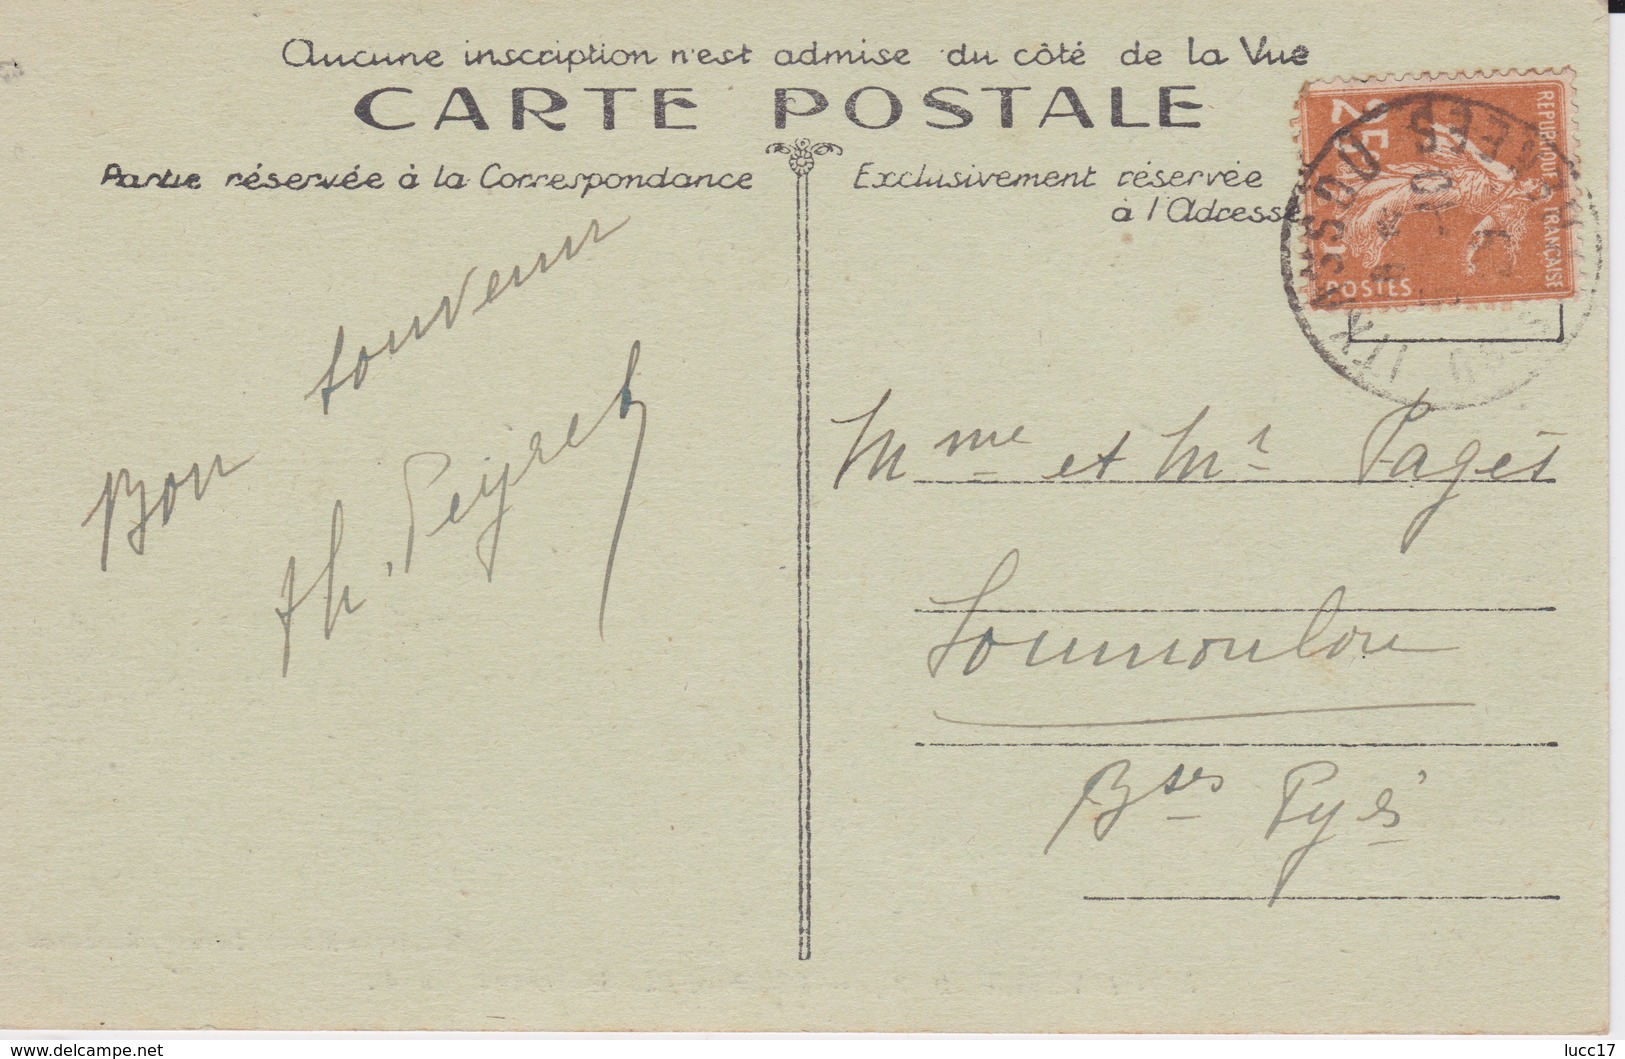 Aucune inscription n'est admise du côté de la Vue
CARTE POSTALE
Partie réservée à la Correspondance
Exclusivement réservée
à l'Adresse
REPUBLIQUE FRANÇAISE
25
POSTES
ITXASSOU
Bon souvenir
Th. Peyret
Mme et Mr Pagès
Soumoulou
Bses Pyés
www.delcampe.net
lucc17